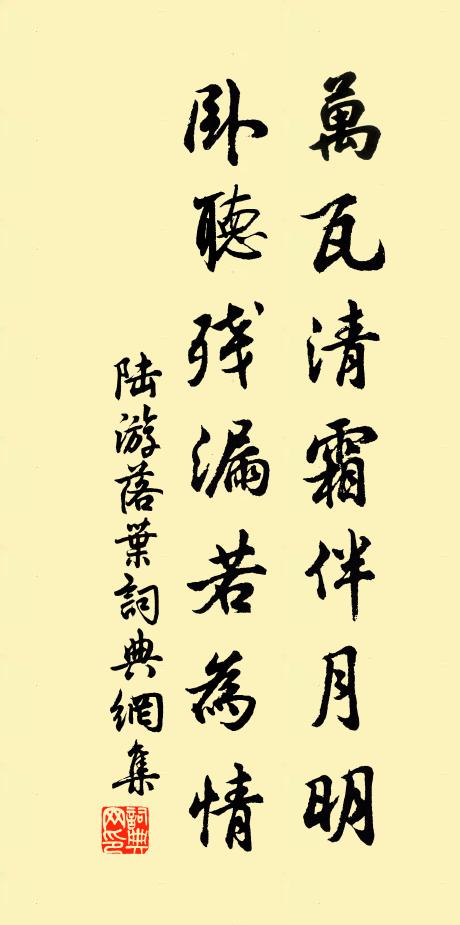 萬瓦清霜伴月明
卧聽殘漏若為情
陆游落葉詞典網集
詞典
网印